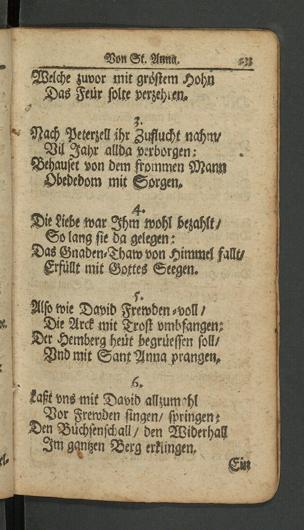 Von St. Anna.
Welche zuvor mit gröstem Hohn
Das Feür solte verzehren.
3.
Nach Peterzell ihr Zuflucht nahm/
Vil Jahr allda verborgen:
Behauset von dem frommen Mann
Obededom mit Sorgen.
4.
Die Liebe war Ihm wohl bezahlt/
So lang sie da gelegen:
Das Gnaden-Thaw von Himmel fallt/
Erfüllt mit Gottes Seegen.
5.
Also wie David Frewden-voll/
Die Arck mit Trost vmbfangen:
Der Hemberg heüt begrüessen soll/
Vnd mit Sant Anna prangen.
6.
Laßt vns mit David allzumahl
Vor Frewden singen/ springen:
Den Büchsenschall/ den Widerhall
Im gantzen Berg erklingen.
Ein